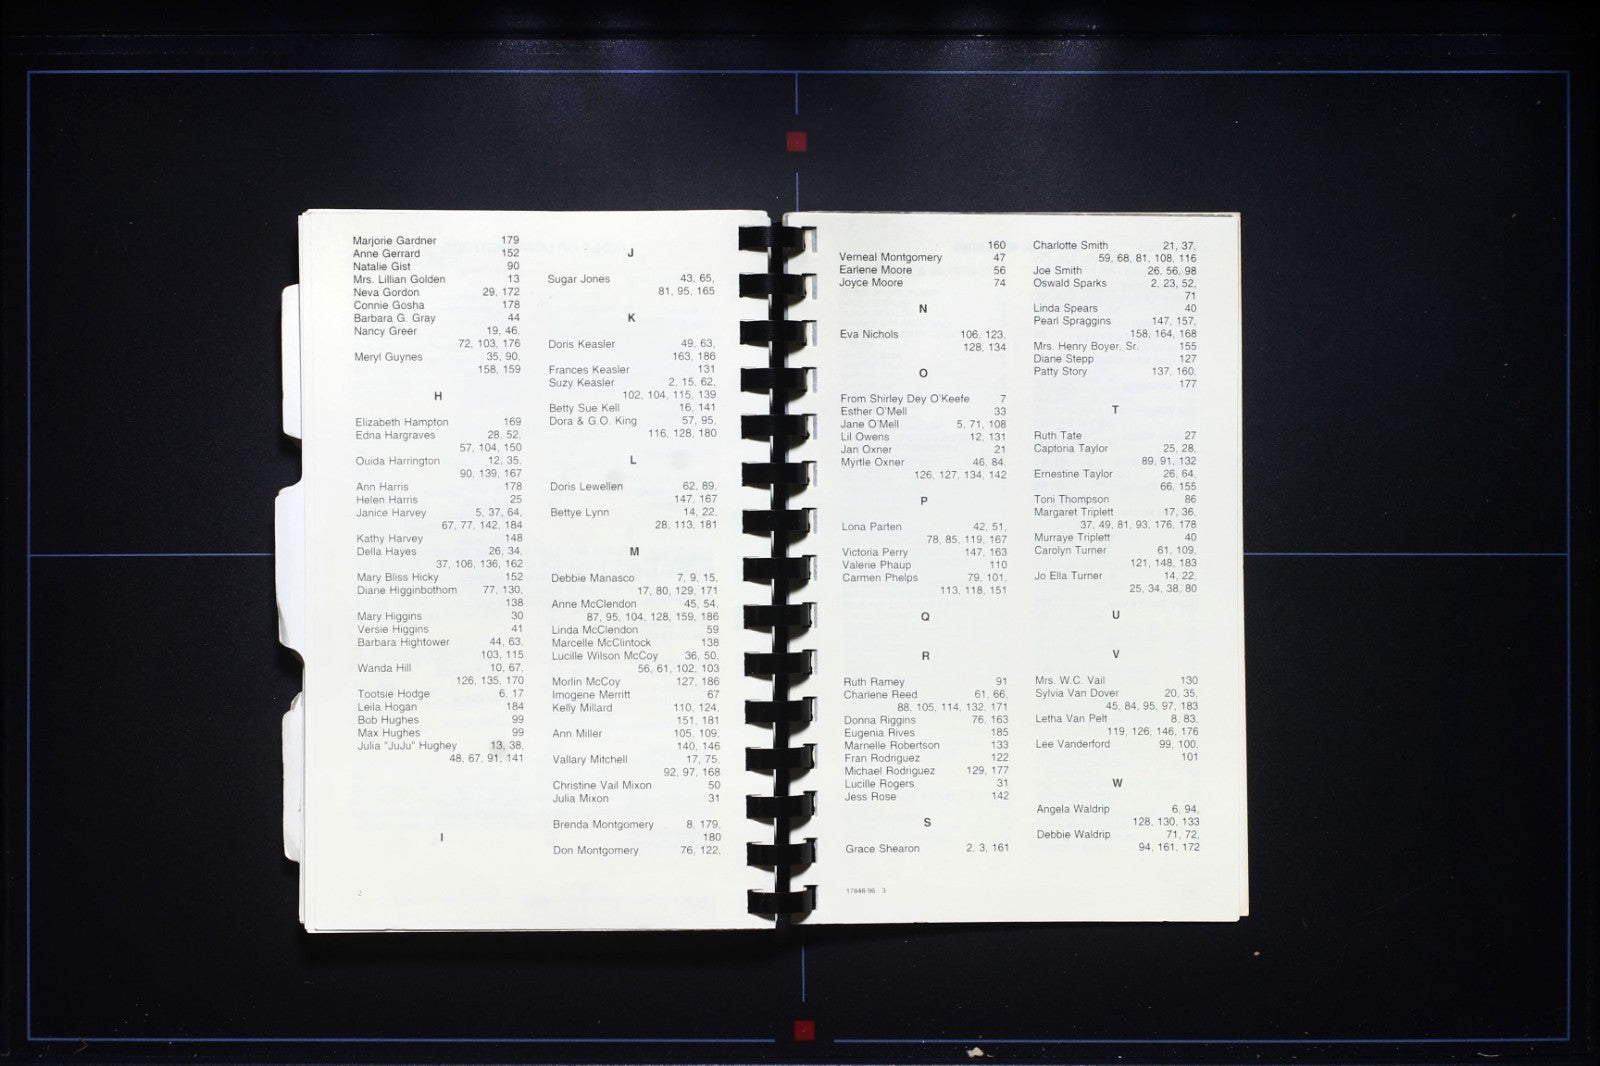 Marjorie Gardner 179
Anne Gerrard 152
Natalie Gist 90
Mrs. Lillian Golden 13
Neva Gordon 29, 172
Connie Gosha 178
Barbara G. Gray 44
Nancy Greer 19, 46,
72, 103, 176
Meryl Guynes 35, 90,
158, 159
H
Elizabeth Hampton 169
Edna Hargraves 28, 52,
57, 104, 150
Ouida Harrington 12, 35,
90, 139, 167
Ann Harris 178
Helen Harris 25
Janice Harvey 5, 37, 64,
67, 77, 142, 184
Kathy Harvey 148
Della Hayes 26, 34,
37, 106, 136, 162
Mary Bliss Hicky 152
Diane Higginbothom 77, 130,
138
Mary Higgins 30
Versie Higgins 41
Barbara Hightower 44, 63,
103, 115
Wanda Hill 10, 67,
126, 135, 170
Tootsie Hodge 6, 17
Leila Hogan 184
Bob Hughes 99
Max Hughes 99
Julia "JuJu" Hughey 13, 38,
48, 67, 91, 141
I
2
J
Sugar Jones 43, 65,
81, 95, 165
K
Doris Keasler 49, 63,
163, 186
Frances Keasler 131
Suzy Keasler 2, 15, 62,
102, 104, 115, 139
Betty Sue Kell 16, 141
Dora & G.O. King 57, 95,
116, 128, 180
L
Doris Lewellen 62, 89,
147, 167
Bettye Lynn 14, 22,
28, 113, 181
M
Debbie Manasco 7, 9, 15,
17, 80, 129, 171
Anne McClendon 45, 54,
87, 95, 104, 128, 159, 186
Linda McClendon 59
Marcelle McClintock 138
Lucille Wilson McCoy 36, 50,
56, 61, 102, 103
Morlin McCoy 127, 186
Imogene Merritt 67
Kelly Millard 110, 124,
151, 181
Ann Miller 105, 109,
140, 146
Vallary Mitchell 17, 75,
92, 97, 168
Christine Vail Mixon 50
Julia Mixon 31
Brenda Montgomery 8, 179,
180
Don Montgomery 76, 122,
160
Verneal Montgomery 47
Earlene Moore 56
Joyce Moore 74
N
Eva Nichols 106, 123,
128, 134
O
From Shirley Dey O'Keefe 7
Esther O'Mell 33
Jane O'Mell 5, 71, 108
Lil Owens 12, 131
Jan Oxner 21
Myrtle Oxner 46, 84,
126, 127, 134, 142
P
Lona Parten 42, 51,
78, 85, 119, 167
Victoria Perry 147, 163
Valerie Phaup 110
Carmen Phelps 79, 101,
113, 118, 151
Q
R
Ruth Ramey 91
Charlene Reed 61, 66,
88, 105, 114, 132, 171
Donna Riggins 76, 163
Eugenia Rives 185
Marnelle Robertson 133
Fran Rodriguez 122
Michael Rodriguez 129, 177
Lucille Rogers 31
Jess Rose 142
S
Grace Shearon 2, 3, 161
17848-96 3
Charlotte Smith 21, 37,
59, 68, 81, 108, 116
Joe Smith 26, 56, 98
Oswald Sparks 2, 23, 52,
71
Linda Spears 40
Pearl Spraggins 147, 157,
158, 164, 168
Mrs. Henry Boyer, Sr. 155
Diane Stepp 127
Patty Story 137, 160,
177
T
Ruth Tate 27
Captoria Taylor 25, 28,
89, 91, 132
Ernestine Taylor 26, 64,
66, 155
Toni Thompson 86
Margaret Triplett 17, 36,
37, 49, 81, 93, 176, 178
Murraye Triplett 40
Carolyn Turner 61, 109,
121, 148, 183
Jo Ella Turner 14, 22,
25, 34, 38, 80
U
V
Mrs. W.C. Vail 130
Sylvia Van Dover 20, 35,
45, 84, 95, 97, 183
Letha Van Pelt 8, 83,
119, 126, 146, 176
Lee Vanderford 99, 100,
101
W
Angela Waldrip 6, 94,
128, 130, 133
Debbie Waldrip 71, 72,
94, 161, 172